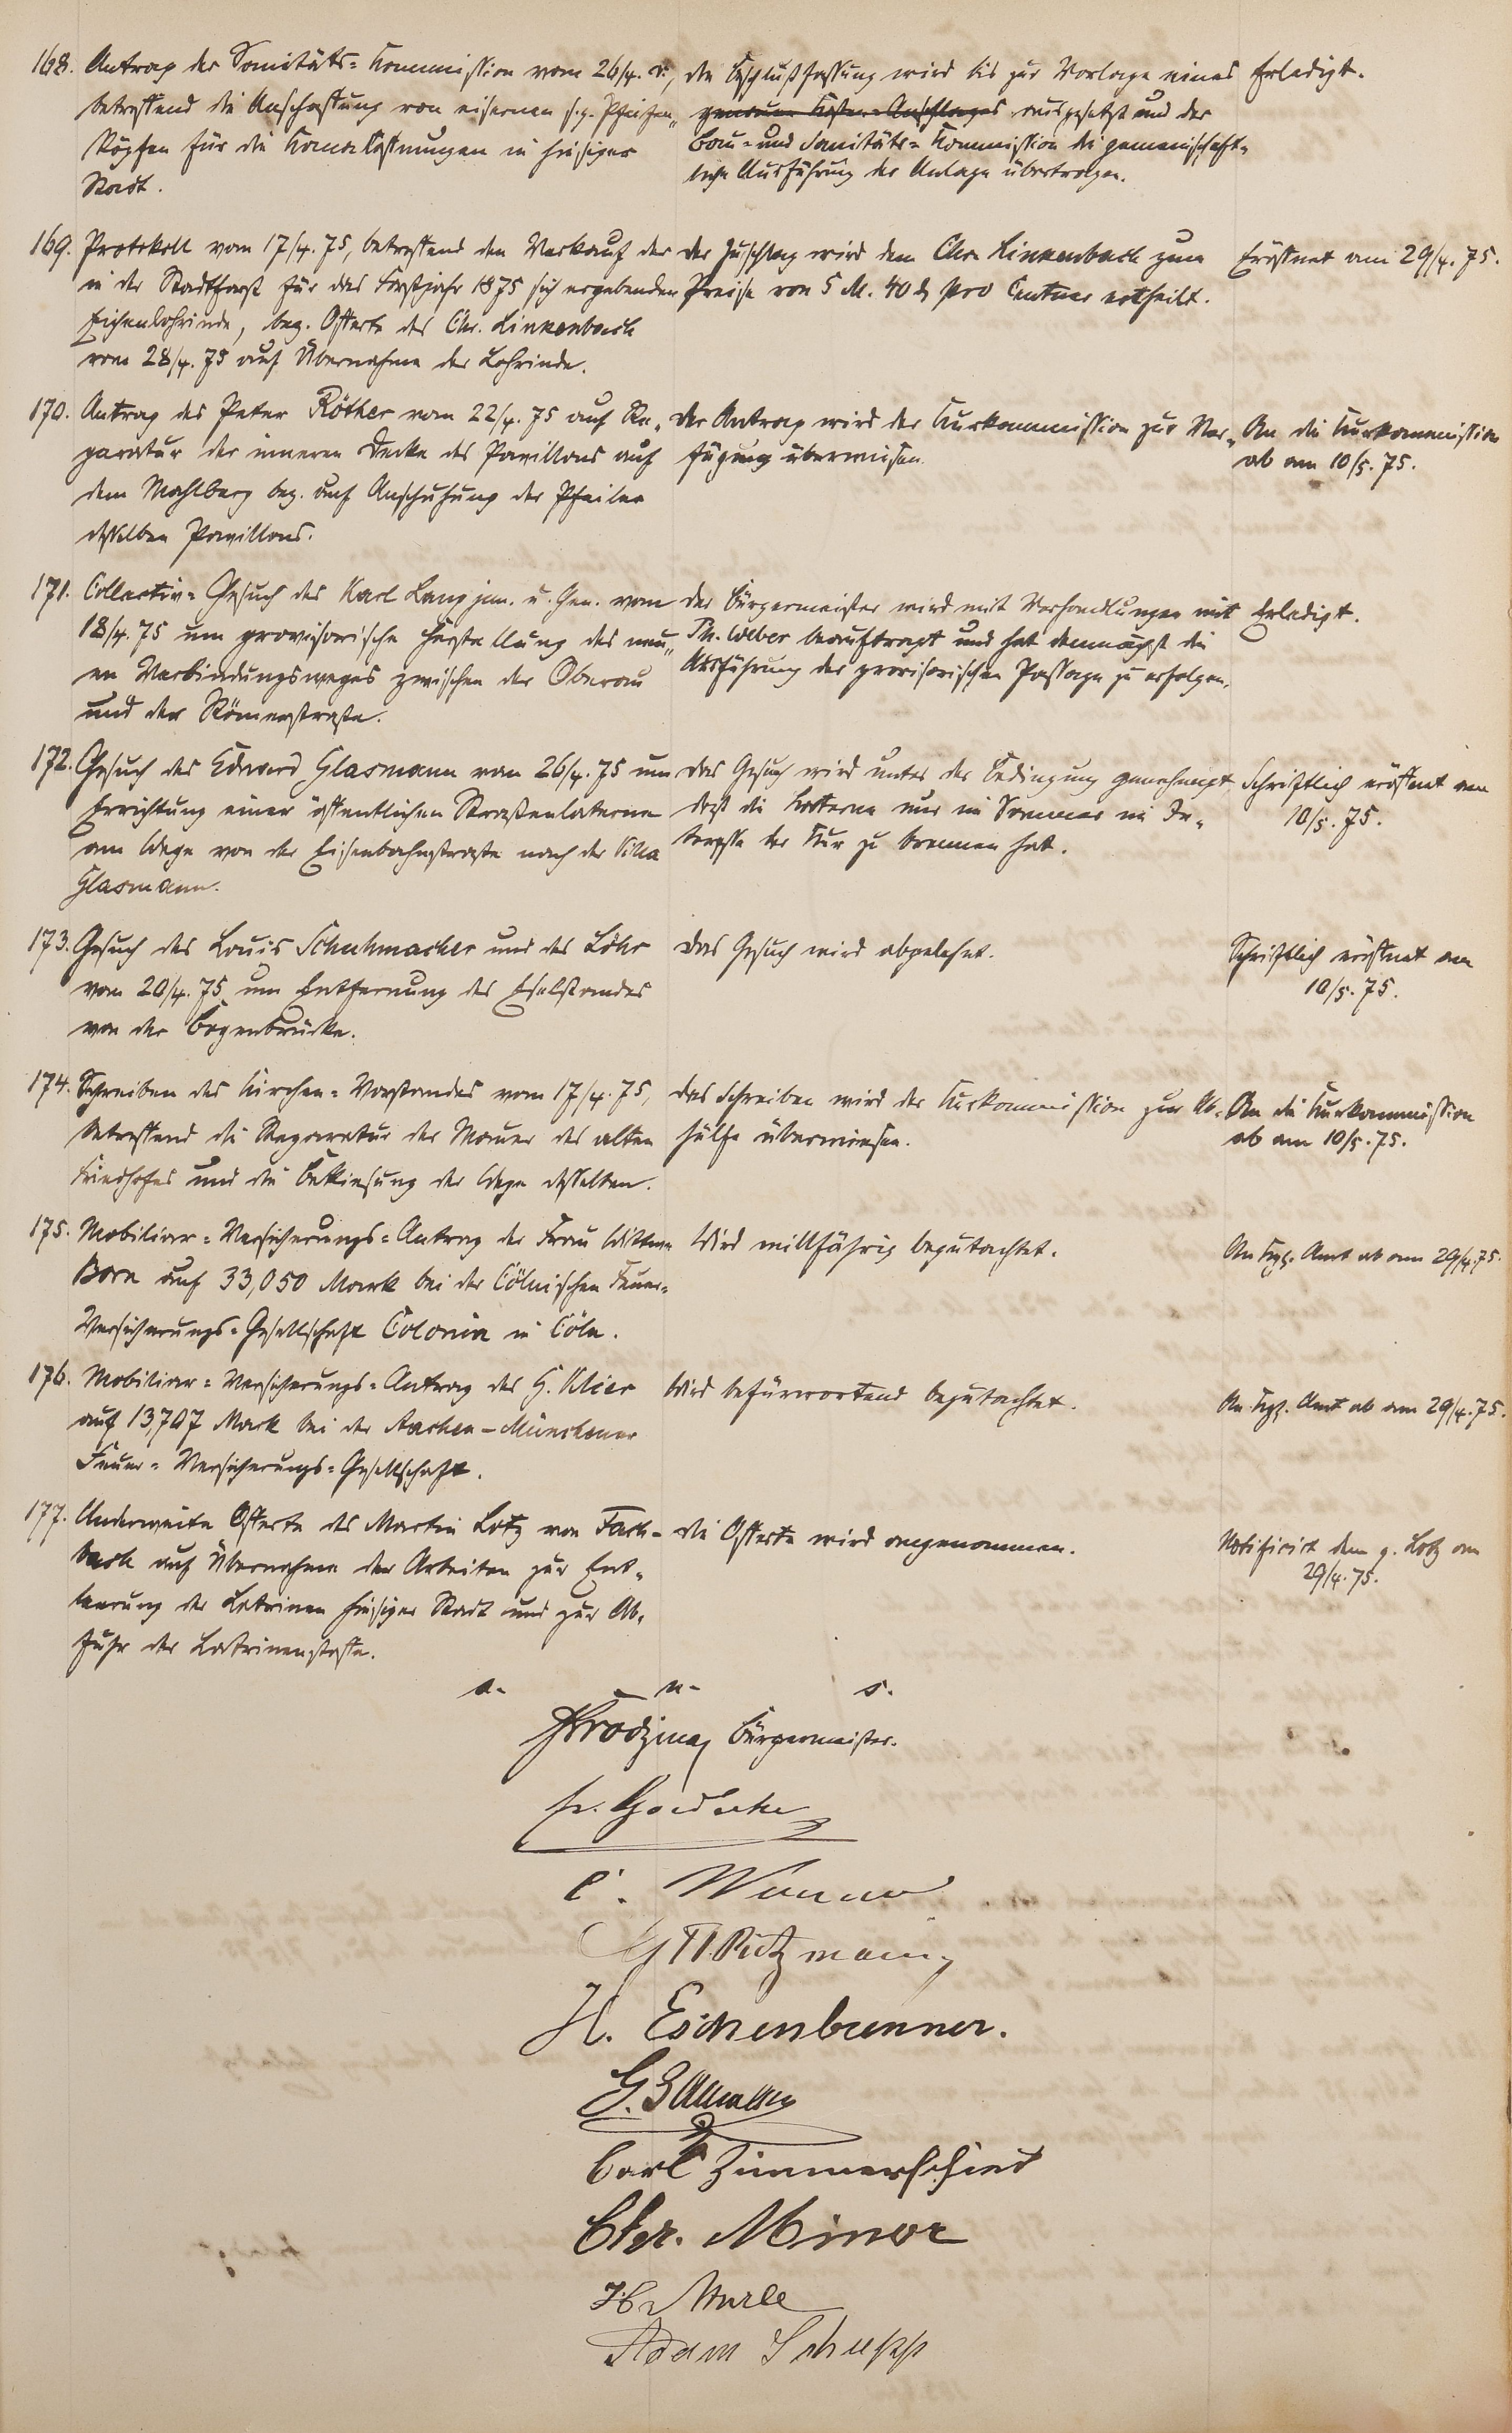 168. Antrag der Sanitäts=Kommission vom 26/4. c.,
betreffend die Anschaffung von eisernen s.g. Pfeifen„
Köpfen für die Kanalöffnungen in hiesiger
Stadt.
die Beschlußfassung wird bis zur Vorlage eines
genauen Kosten-Anschlages ausgesetzt und der
Bau= und Sanitäts=Kommission die gemeinschaft„
liche Ausführung der Anlage übertragen.
Erledigt.
169. Protokoll vom 17/4. 75, betreffend den Verkauf der
in der Stadtforst für das Forstjahr 1875 sich ergebenden
Eichenlohrinde, bez. Offerte des Chr. Linkenbach
vom 28/4. 75 auf Übernahme der Lohrinde.
der Zuschlag wird dem Chr. Linkenbach zum
Preise von 5 M. 40 ₰ pro Centner ertheilt.
Eröffnet am 29/4. 75.
170. Antrag des Peter Röther vom 22/4. 75 auf Re„
paratur der inneren Decke des Pavillons auf
dem Mahlberg bez. auf Anschuhung der Pfeiler
desselben Pavillons.
der Antrag wird der Kurkommission zur Ver„
fügung überwiesen.
An die Kurkommission
ab am 10/5. 75.
171. Collectiv=Gesuch des Karl Lang jun. u. Gen. vom
18/4. 75 um provisorische Herstellung des neu„
en Verbindungsweges zwischen der Oberau
und der Römerstraße.
der Bürgermeister wird mit Verhandlungen mit
Ph. Weber beauftragt und hat demnächst die
Ausführung der provisorischen Passage zu erfolgen.
Erledigt.
172. Gesuch des Edward Glasmann vom 26/4. 75 um
Errichtung einer öffentlichen Straßenlaterne
am Wege von der Eisenbahnstraße nach der Villa
Glasmann.
das Gesuch wird unter der Bedingung genehmigt
daß die Laterne nur im Sommer im In„
teresse der Kur zu brennen hat.
Schriftlich eröffnet am
10/5. 75.
173. Gesuch des Louis Schuhmacher und des Löhr
vom 20/4. 75 um Entfernung des Eselstandes
von der Bogenbrücke.
das Gesuch wird abgelehnt.
Schriftlich eröffnet am
10/5. 75.
174. Schreiben des Kirchen=Vorstandes vom 17/4. 75,
betreffend die Reparatur der Mauer des alten
Friedhofes und die Bekiesung der Wege desselben.
das Schreiben wird der Kurkommission zur Ab„
hülfe überwiesen.
An die Kurkommission
ab am 10/5. 75.
175. Mobiliar=Versicherungs=Antrag der Frau Wittwe
Born auf 33,050 Mark bei der Cölnischen Feuer=
Versicherungs=Gesellschaft Colonia in Cöln.
Wird willfährig begutachtet.
An Kgl. Amt ab am 29/4. 75.
176. Mobiliar=Versicherungs=Antrag des H. Klier
auf 13,707 Mark bei der Aachen-Münchener
Feuer=Versicherungs=Gesellschaft.
Wird befürwortend begutachtet.
An Kgl. Amt ab am 29/4. 75.
177. Anderweite Offerte des Martin Lotz von Fach=
bach auf Übernahme der Arbeiten zur Ent„
leerung der Latrinen hiesiger Stadt und zur Ab„
fuhr der Latrinenstoffe.
die Offerte wird angenommen.
Notificirt dem p. Lotz am
29/4. 75.
a. u. s.
Bürgermeister.
H. Eschenbrenner.
Carl Zimmerschied
Chr. Minor
Adam Schupp